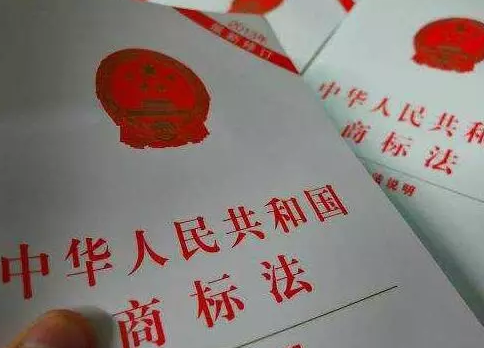 2013年
最新修订
中华人民共和国
商标法
中华人民共和
商标法
说明